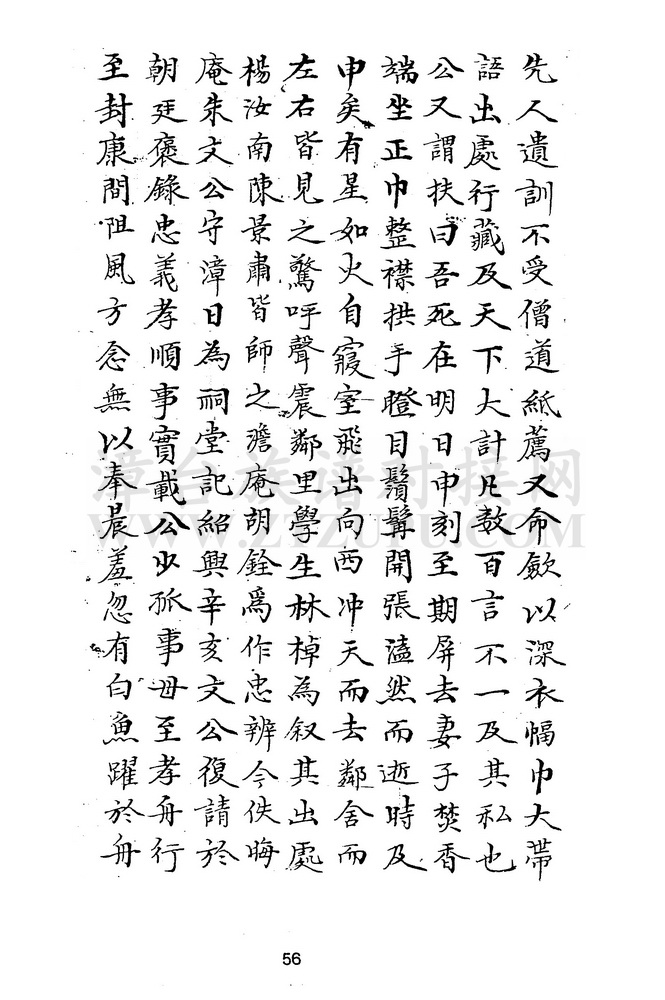 先人遺訓不受僧道紙薦又命斂以深衣幅巾大帶
語出處行藏及天下大計凡数百言不一及其私也
公又謂扶曰吾死在明日申刻至期屏去妻子焚香
端坐正巾整襟拱手瞪目鬚髯開張溘然而逝時及
申矣有星如火自寢室飛出向西冲天而去鄰舍而
左右皆見之驚呼聲震鄰里學生林棹為叙其出處
楊汝南陳景肅皆師之澹庵胡銓爲作忠辨今佚晦
庵朱文公守漳日為祠堂記紹興辛亥文公復請於
朝廷褒錄忠義孝順事實載公少孤事毋至孝舟行
至封康間阻風方念無以奉晨羞忽有白魚躍於舟
漳台族谱对接网
WWW.ZTZUPU.COM
56